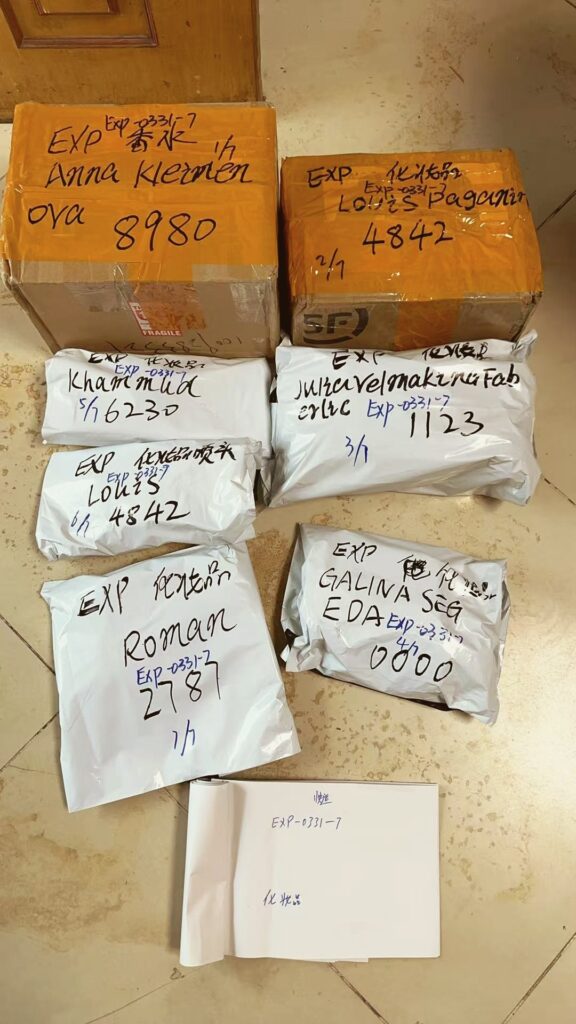 EXP EXP-0331-7 香水
1/7
Anna Kleimen
ova 8980
FRAGILE
EXP 化妆品
EXP-0331-7
Louis Paganin
4842
2/7
SF
EXP 化妆品
Khammud
EXP-0331-7
5/7 6230
EXP 化妆品
Juliavelmakina Fab
erlic EXP-0331-7
1123
3/7
EXP 化妆品喷头
EXP-0331-7
Louis
6/7 4842
EXP 化妆品
GALINA SEG
EDA EXP-0331-7
4/7
0000
EXP 化妆品
Roman
EXP-0331-7
2787
7/7
EXP-0331-7
化妆品